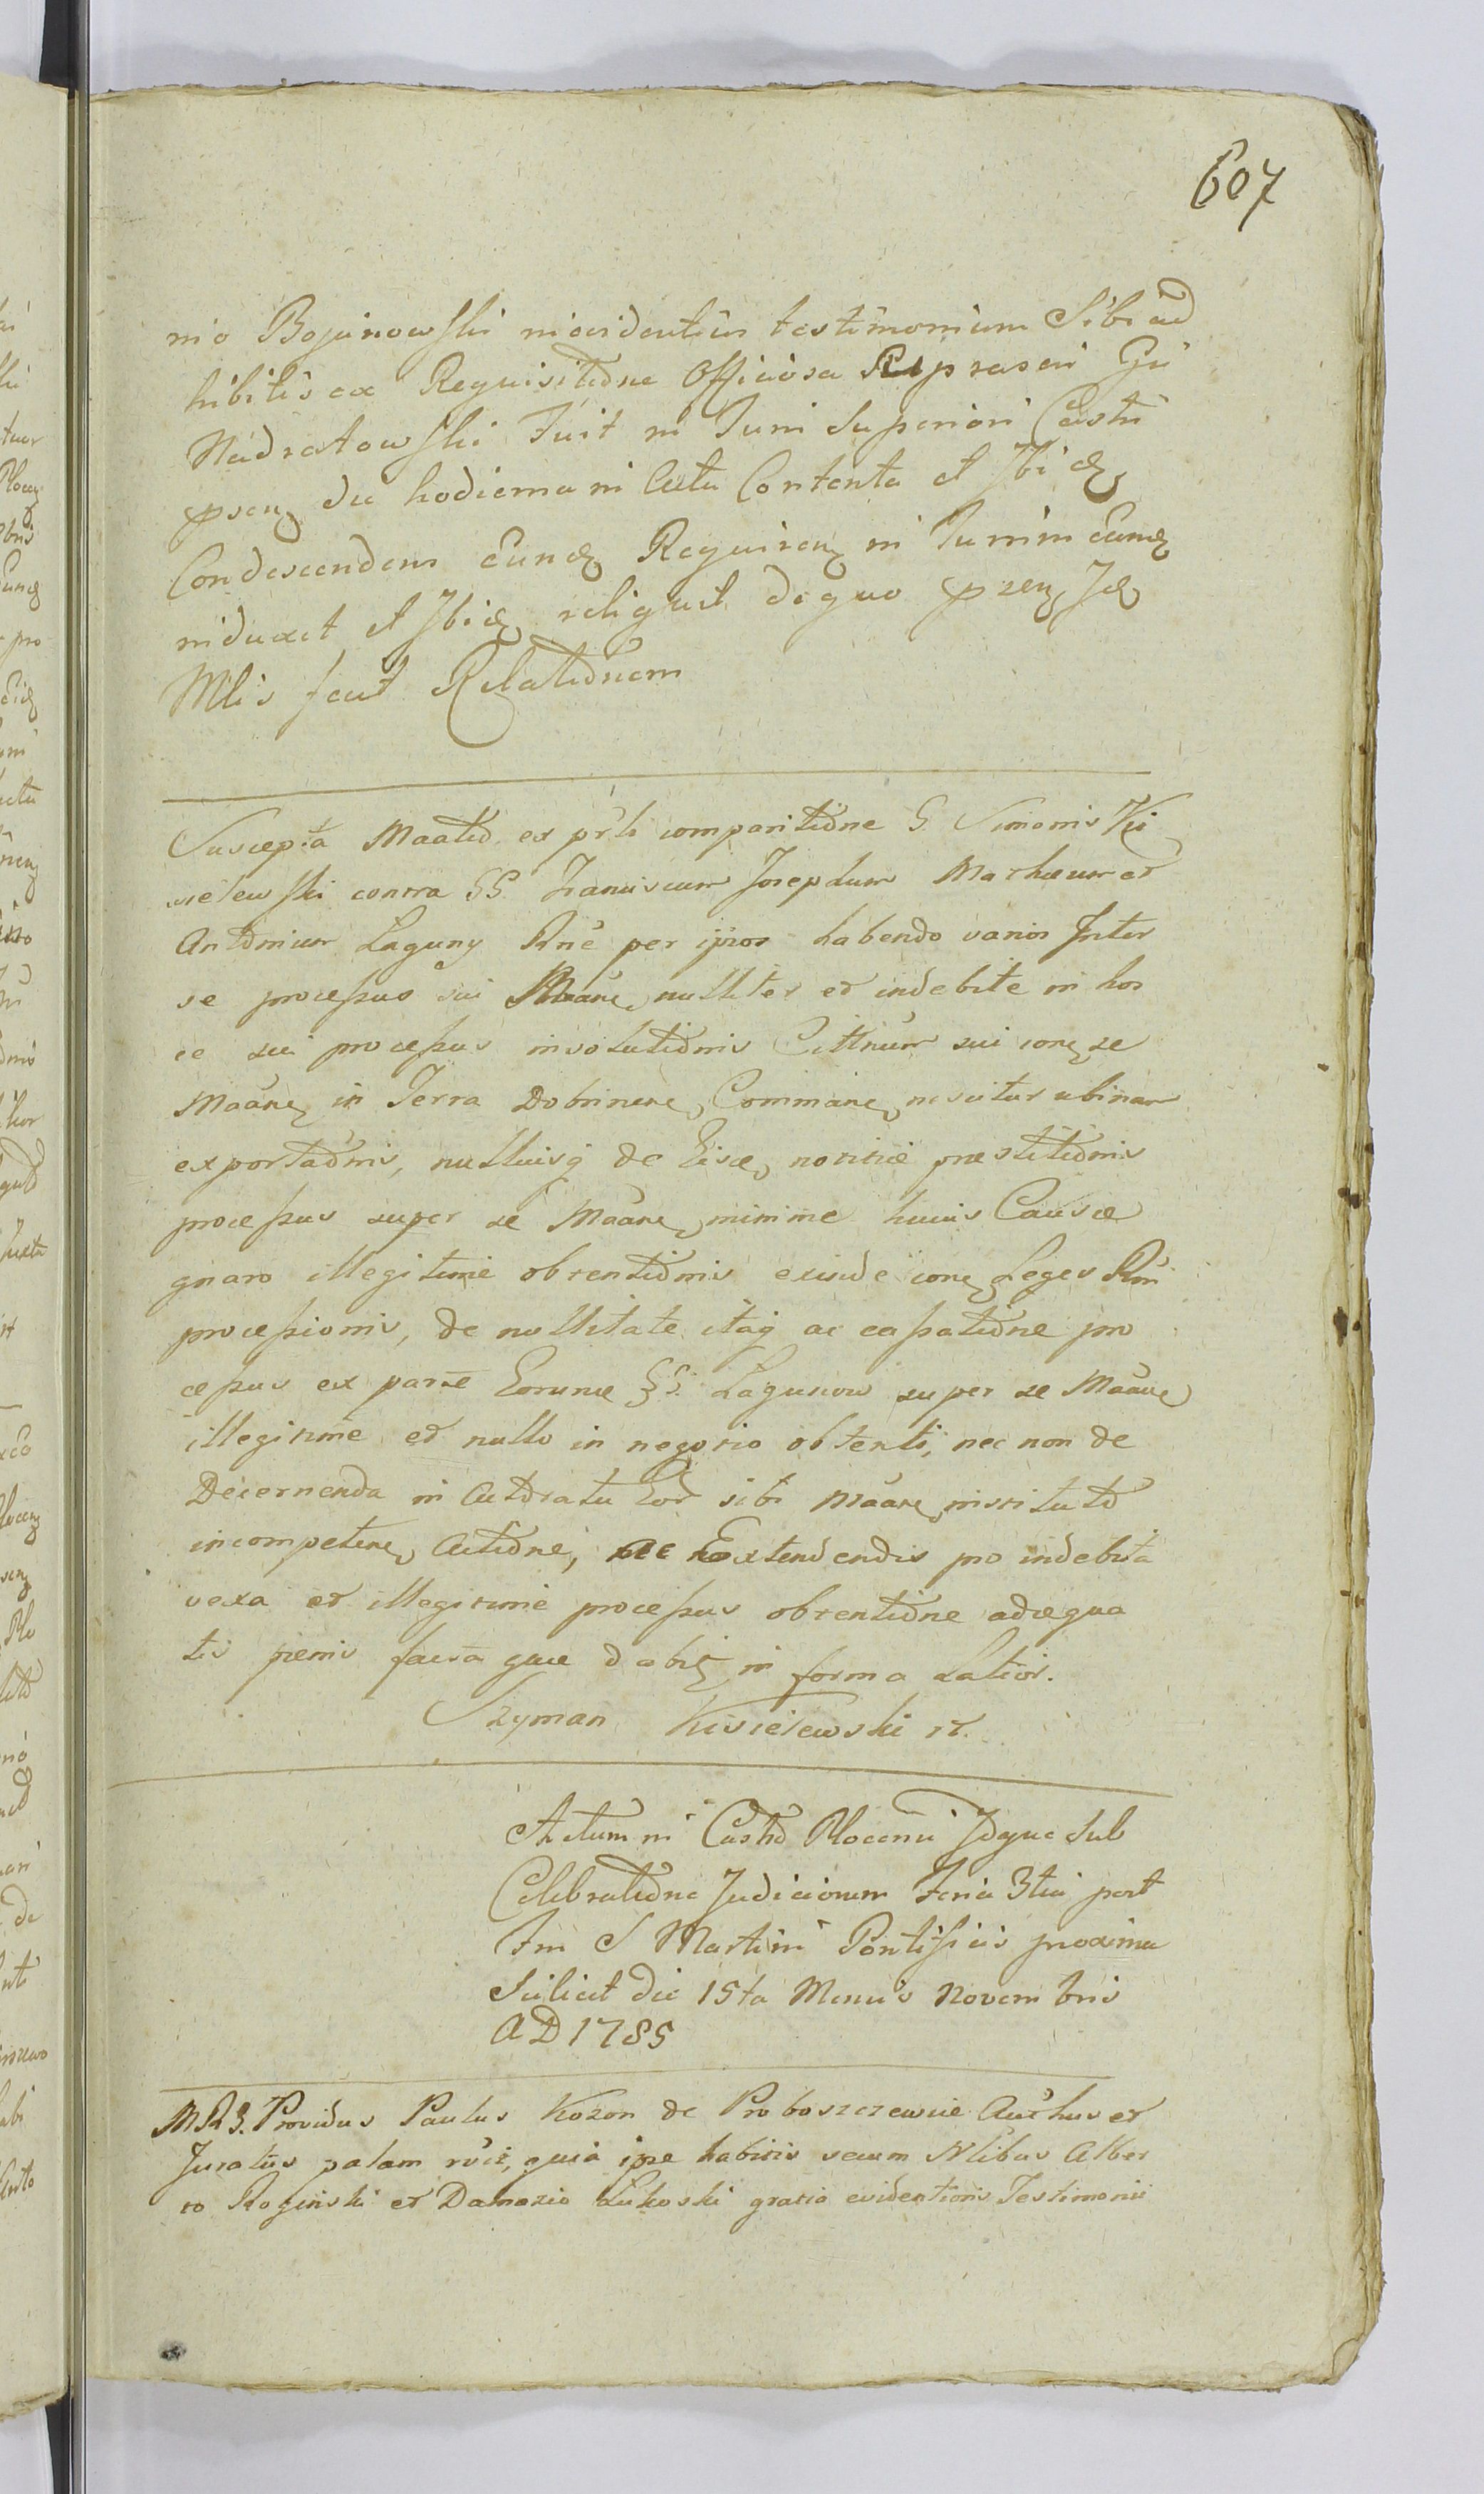 607
nio Bojanowski in evidentius testimonium Sibi ad
hibitis ex Requisitione Officiosa Reprasen Gü
Nadratowski Fuit in Turri Superiori Castri
psen die hodierna in Actu Contenta et Ibid
Condescendens Eund Requiren in Turrim eund
induxit et Ibid reliquit de quo pren Jd
Mlis fecit Relationem
Suscepta Maatio ex prli comparitione G Simonis Ki
sielewski contra GG Franciscum Josephum Mathæum et
Antonium Laguny Rne per ipsos habendo varios Inter
se processus sui Maane nulliter et indebite in hos
ce sui processus involutionis Cittnum sui conc se
Maane in Terra Dobrinene Commane nescitur ubinam
exportaonis, nulliusq de Eisce notitiæ prestitionis
processus super se Maane minime huius Causæ
gnaro illegitime obtentionis exinde conc Leges Rni
processionis, de nullitate itaq ac cassatione pro
cessus ex parte Eorunce GG Lagunow super se Maane
illegitime et nullo in negotio obtenti, nec non de
Decernenda in Actoratu Eor sibi Maane instituto
incompetene Actione, ac Extendendis pro indebita
vexa et illegitime processus obtentione adæqua
tis pænis facta quæ dabit in forma Latior.
Szyman Kisielewski rt.
Actum in Castro Plocensi Idque sub
Celebratione Judiciorum Feria 3tia post
Fm S Martini Pontificis proxima
Scilicet die 15ta Mensis Novem bris
AD 1785
MR3. Providus Paulus Kozon de Proboszczewice Authus et
Juratus palam rvit, quia ipse habitis secum Nlibus Alber
to Roginski et Damazio Lukoski gratia evidentioris Testimonii